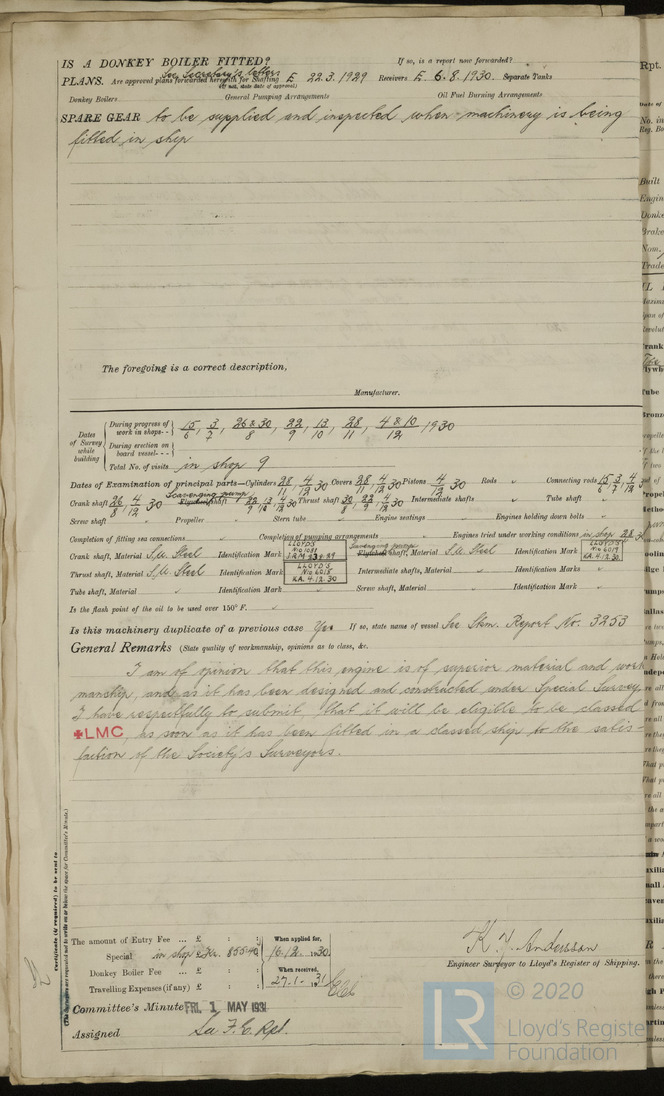 IS A DONKEY BOILER FITTED? If so, is a report now forwarded?
See Secretary's letters
PLANS. Are approved plans forwarded herewith for Shafting E 22.3.1929 Receivers E 6.8.1930. Separate Tanks
(If not, state date of approval)
Donkey Boilers General Pumping Arrangements Oil Fuel Burning Arrangements
SPARE GEAR to be supplied and inspected when machinery is being
fitted in ship
The foregoing is a correct description,
Manufacturer.
Dates of Survey while building
During progress of work in shops - - 15/6, 3/7, 26 & 30/8, 22/9, 13/10, 28/11, 4 & 10/12 1930
During erection on board vessel - - -
Total No. of visits in shop 9
Dates of Examination of principal parts—Cylinders 28/11, 4/12 30 Covers 28/11, 4/12 30 Pistons 4/12 30 Rods " Connecting rods 15/6 3/7 4/12
Scavenging pump
Crank shaft 26/8 4/12 30 Flywheel shaft 22/9 13/10 4/12 30 Thrust shaft 30/8 22/9 4/12 30 Intermediate shafts " Tube shaft "
Screw shaft " Propeller " Stern tube " Engine seatings " Engines holding down bolts "
Completion of fitting sea connections " Completion of pumping arrangements " Engines tried under working conditions in shop
Crank shaft, Material S.M. Steel Identification Mark LLOYD'S
Scavenging pump
Flywheel shaft, Material S.M. Steel Identification Mark LLOYD'S No 6019 KA. 4.12.30
Thrust shaft, Material S.M. Steel Identification Mark LLOYD'S No 6018 KA. 4.12.30 Intermediate shafts, Material " Identification Marks "
Tube shaft, Material " Identification Mark " Screw shaft, Material " Identification Mark "
Is the flash point of the oil to be used over 150° F. "
Is this machinery duplicate of a previous case Yes If so, state name of vessel See Skm. Report No. 3253
General Remarks (State quality of workmanship, opinions as to class, &c.
I am of opinion that this engine is of superior material and work
manship, and as it has been designed and constructed under Special Survey
I have respectfully to submit, that it will be eligible to be classed
✠LMC, as soon as it has been fitted in a classed ship to the satis-
faction of the Society's Surveyors.
Certificate (if required) to be sent to
(The Surveyors are requested not to write on or below the space for Committee's Minute.)
The amount of Entry Fee ... £ : : When applied for,
Special in shop Kr. 855.40 16.12.1930.
Donkey Boiler Fee ... £ : : When received,
Travelling Expenses (if any) £ : : 27.1.1931
K. V. Andersson
Engineer Surveyor to Lloyd's Register of Shipping.
Committee's Minute FRI. 1 MAY 1931
Assigned See F.E. Rpt.
LR
© 2020
Lloyd's Registe
Foundation